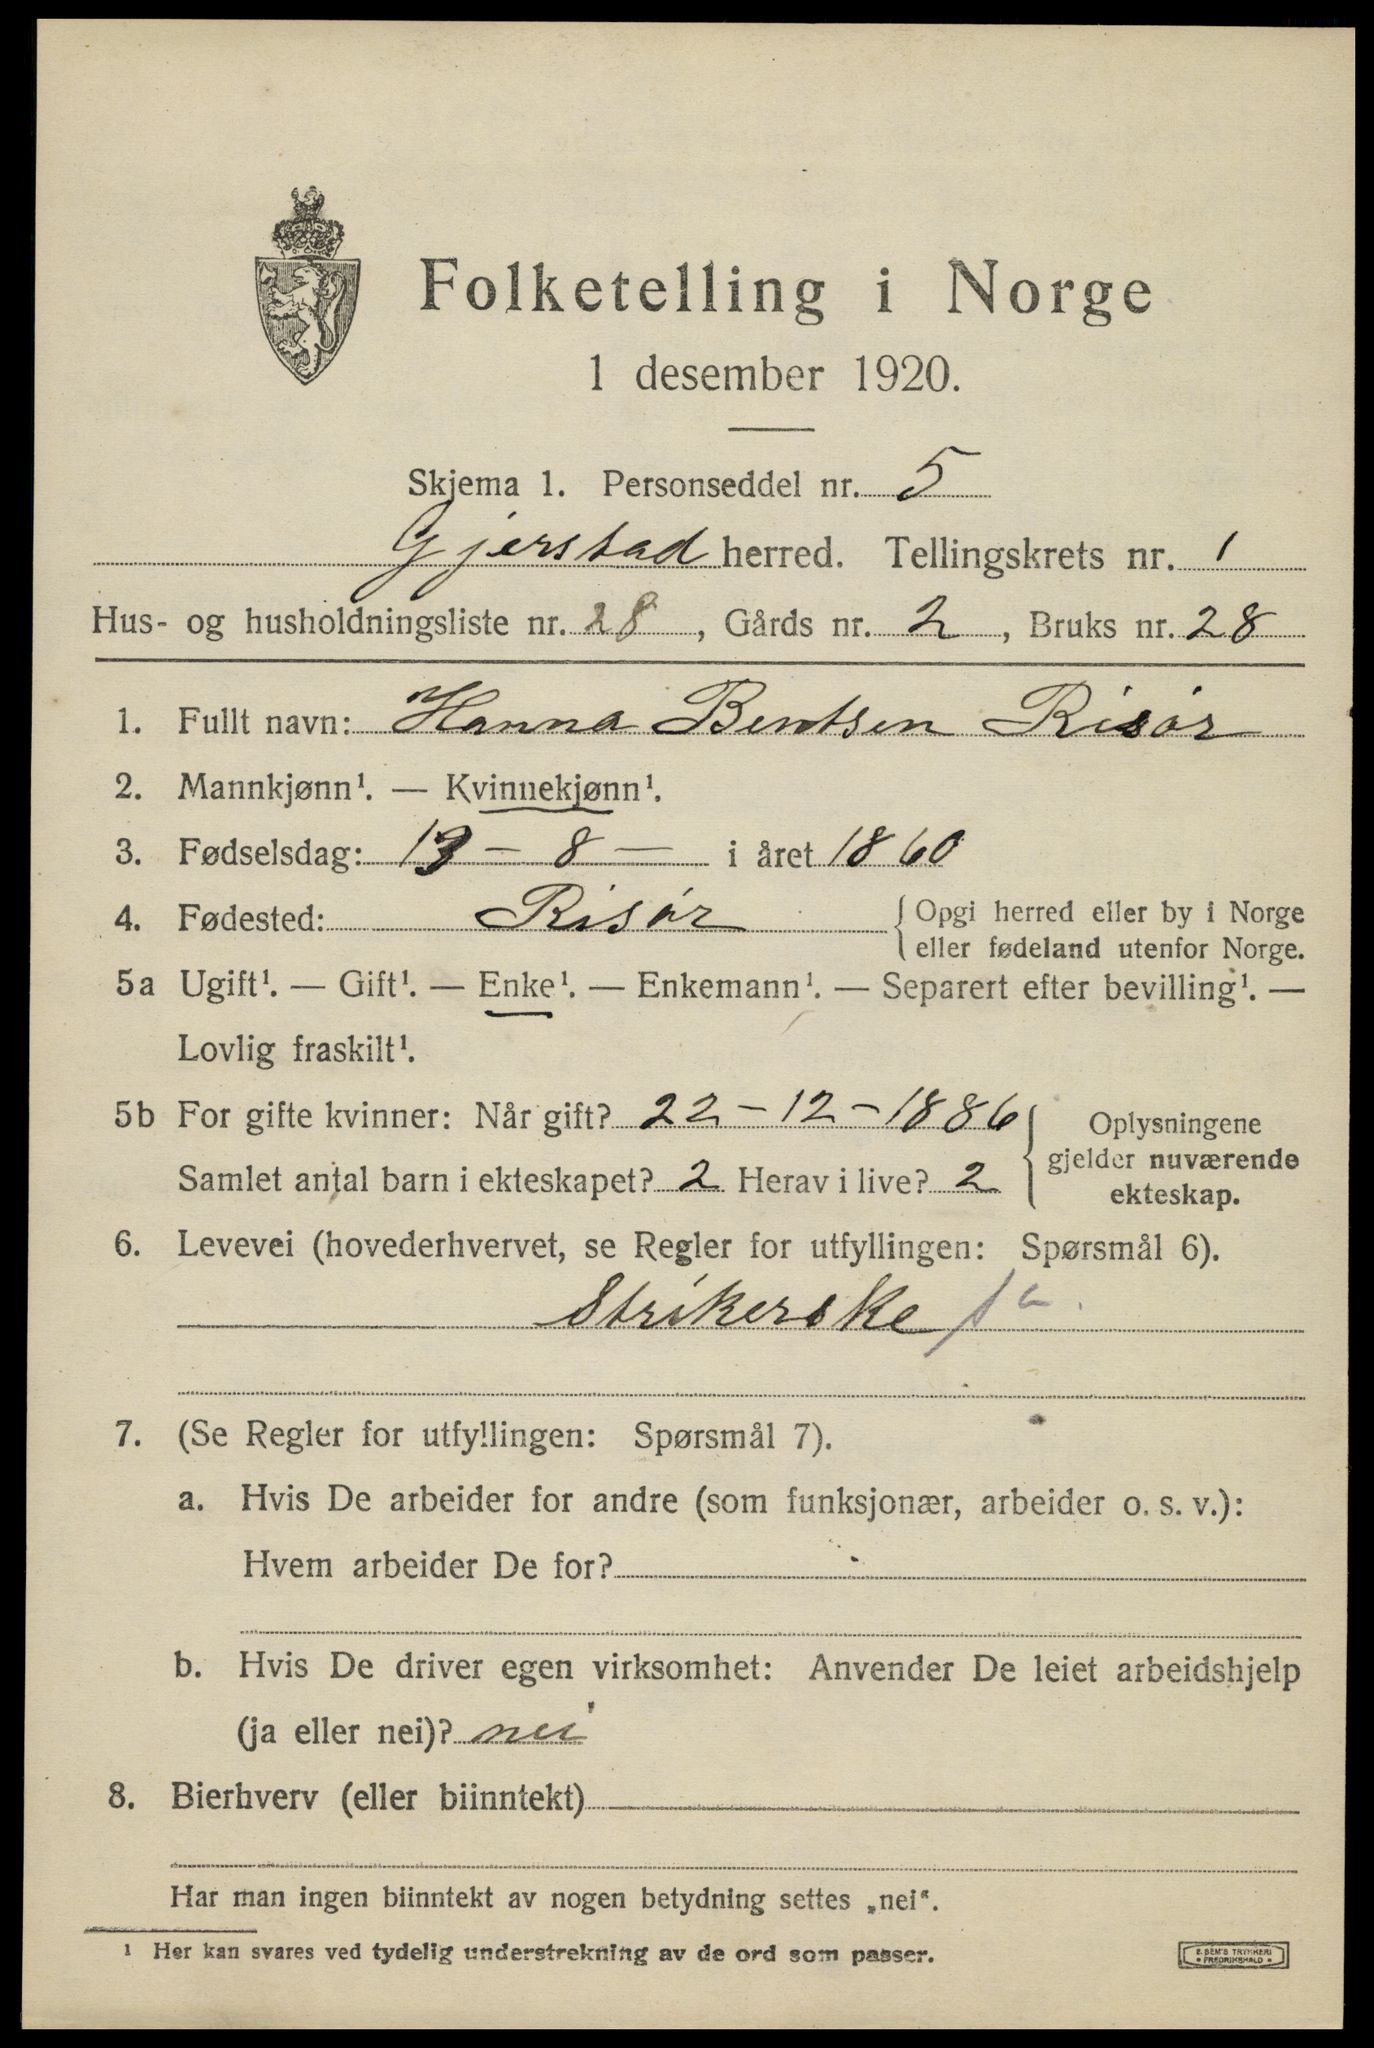 Folketelling i Norge
1 desember 1920.
Skjema 1. Personseddel nr. 5
Gjerstad herred. Tellingskrets nr. 1
Hus- og husholdningsliste nr. 28, Gårds nr. 2, Bruks nr. 28
1. Fullt navn: Hanna Bentsen Risør
2. Mannkjønn¹. — Kvinnekjønn¹.
3. Fødselsdag: 13 - 8 - i året 1860
4. Fødested: Risør { Opgi herred eller by i Norge
eller fødeland utenfor Norge.
5a Ugift¹. — Gift¹. — Enke¹. — Enkemann¹. — Separert efter bevilling¹. —
Lovlig fraskilt¹.
5b For gifte kvinner: Når gift? 22-12-1886
Samlet antal barn i ekteskapet? 2 Herav i live? 2
{ Oplysningene
gjelder nuværende
ekteskap.
6. Levevei (hovederhvervet, se Regler for utfyllingen: Spørsmål 6).
Strikerske
7. (Se Regler for utfyllingen: Spørsmål 7).
a. Hvis De arbeider for andre (som funksjonær, arbeider o. s. v.):
Hvem arbeider De for?
b. Hvis De driver egen virksomhet: Anvender De leiet arbeidshjelp
(ja eller nei)? nei
8. Bierhverv (eller biinntekt)
Har man ingen biinntekt av nogen betydning settes „nei“.
¹ Her kan svares ved tydelig understrekning av de ord som passer.
E. SEM'S TRYKKERI
• FREDRIKSHALD •